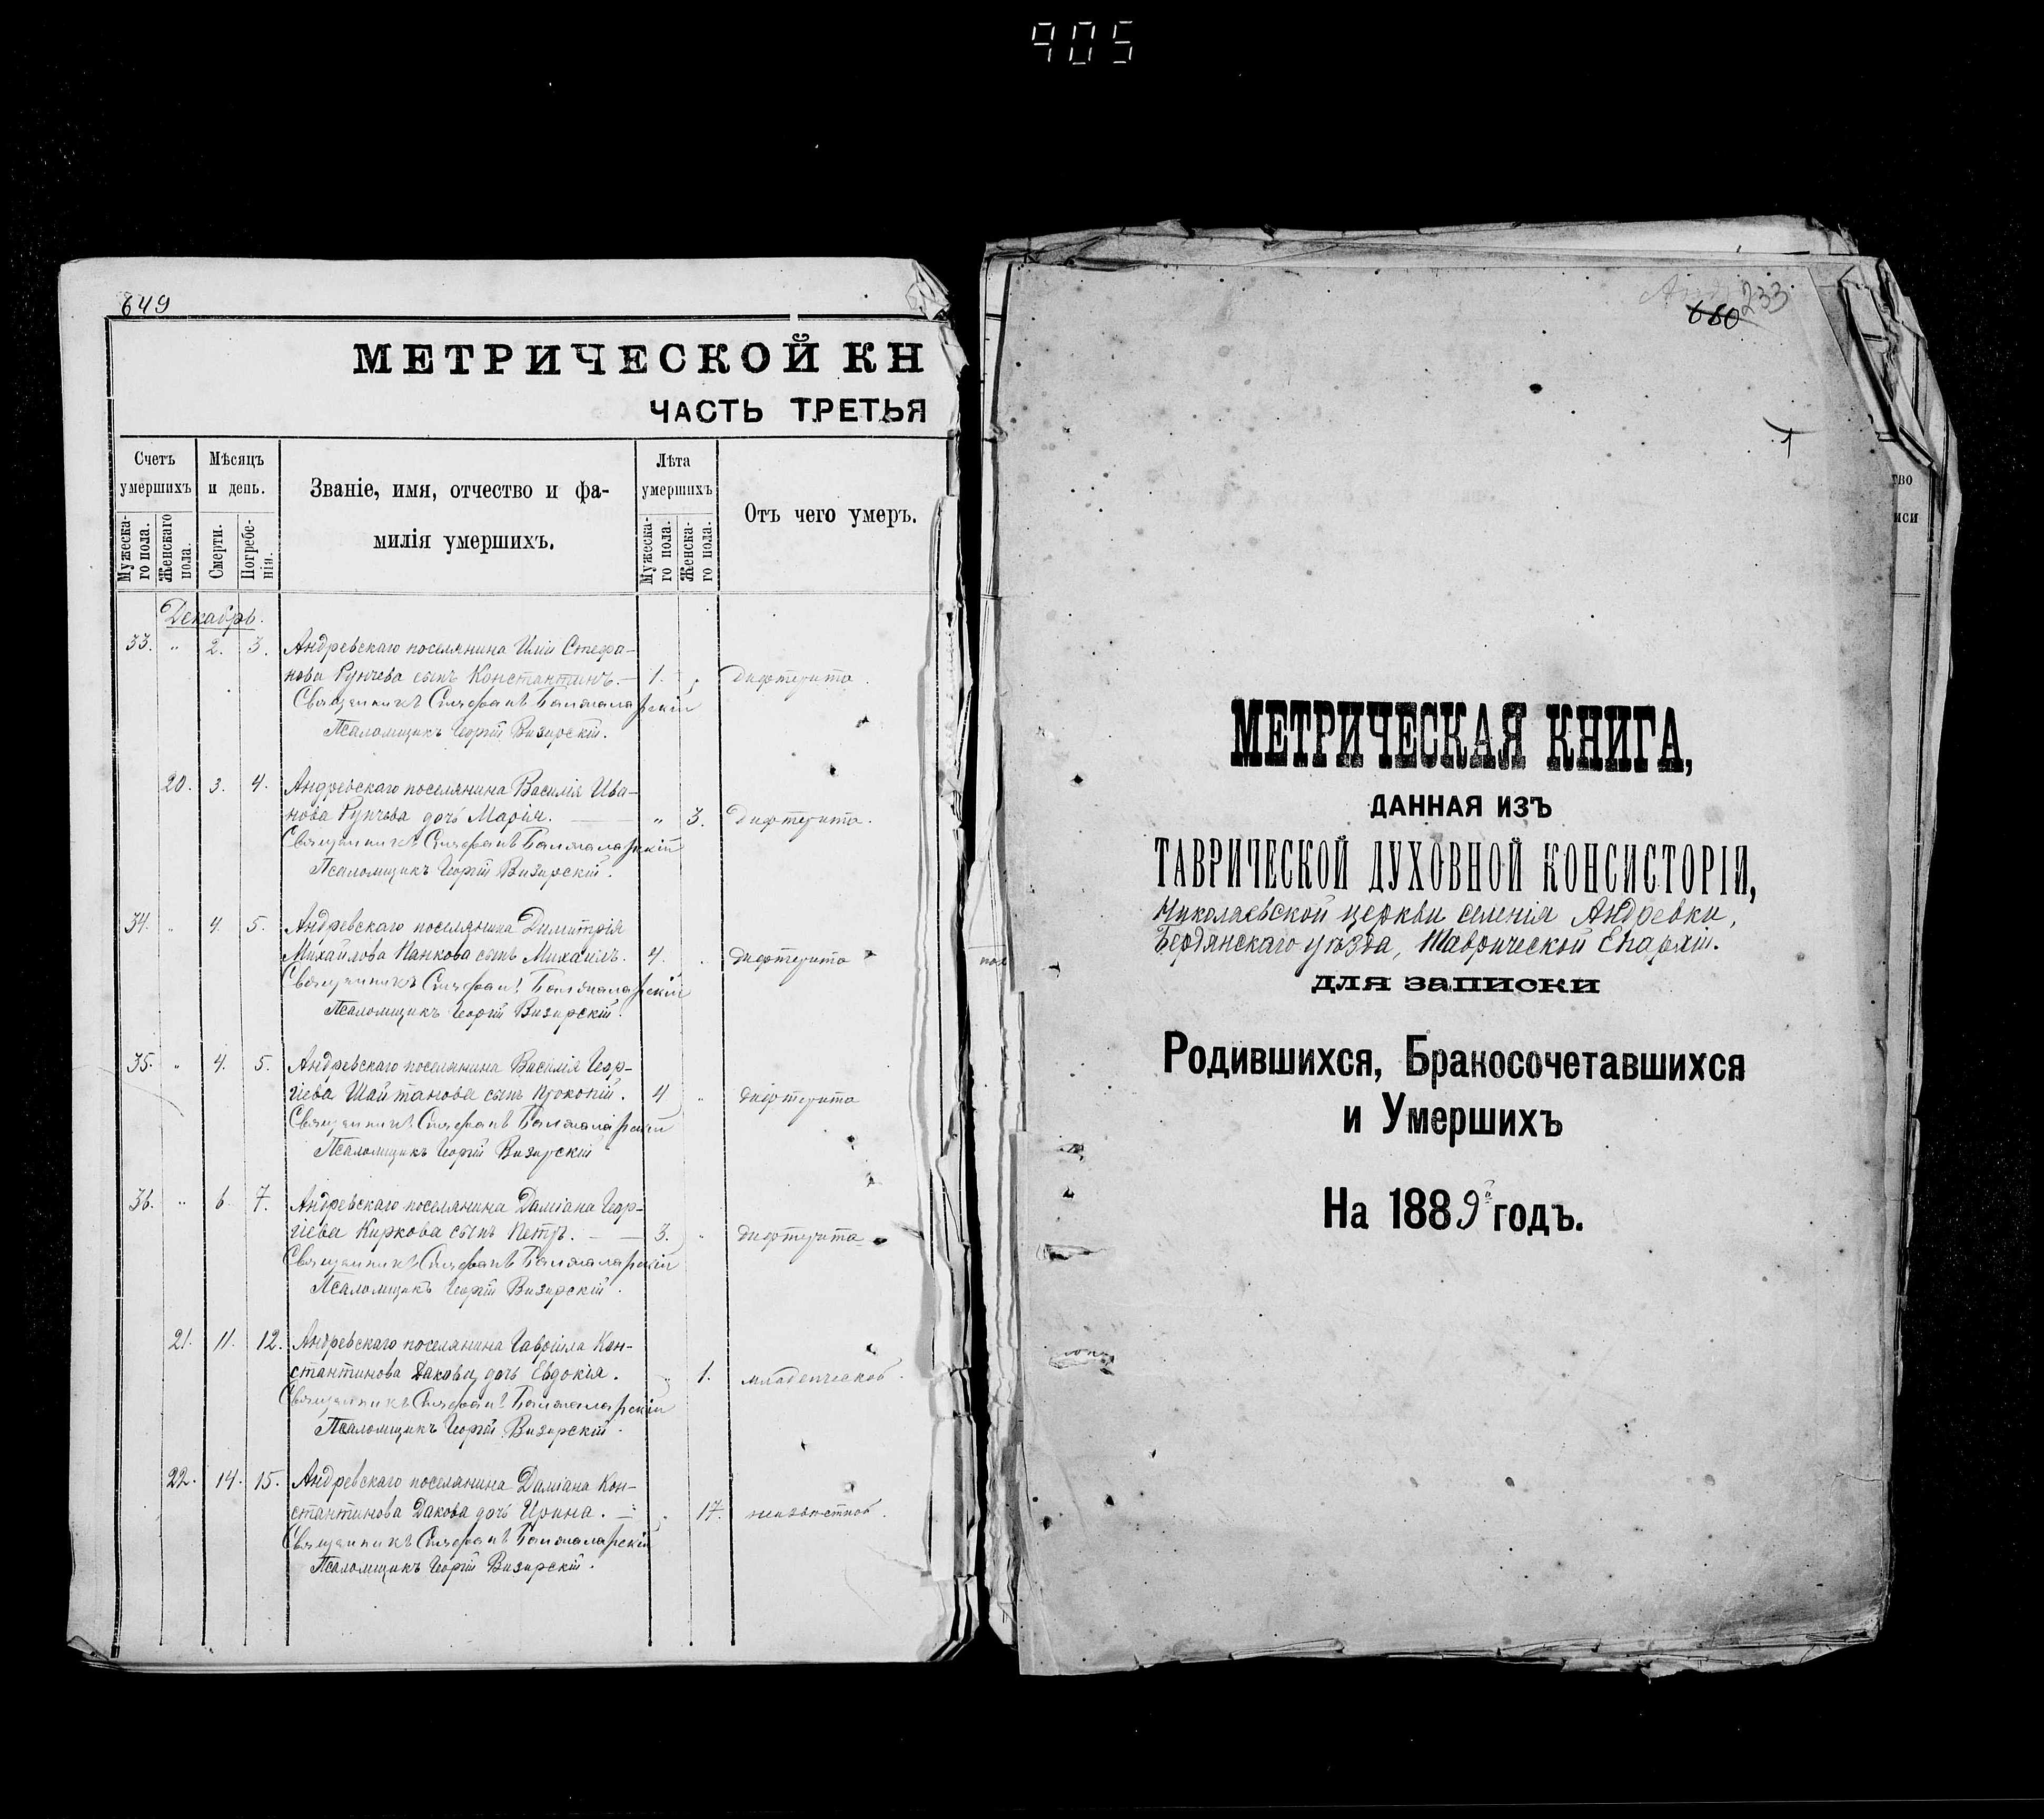 905
649
МЕТРИЧЕСКОЙ КН
ЧАСТЬ ТРЕТЬЯ
Счетъ умершихъ
Мужеска-
го пола.
Женскаго
пола.
Мѣсяцъ и день.
Смерти.
Погребе-
нія.
Званіе, имя, отчество и фа-
милія умершихъ.
Лѣта умершихъ
Мужеска-
го пола.
Женска-
го пола.
Отъ чего умеръ.
Декабрь.
33. " 2. 3. Андревскаго поселянина Иліи Стефа-
нова Рунчева сынъ Константинъ. — 1. " дифтерита.
Священникъ Стефанъ Балжаларскій
Псаломщикъ Георгій Визирскій.
20. 3. 4. Андревскаго поселянина Василія Ива-
нова Рунчева дочь Марія. — " 3. Дифтерита.
Священникъ Стефанъ Балжаларскій
Псаломщикъ Георгій Визирскій.
34. " 4. 5. Андревскаго поселянина Димитрія
Михайлова Панкова сынъ Михаилъ. 4. дифтерита
Священникъ Стефанъ Балжаларскій
Псаломщикъ Георгій Визирскій.
35. " 4. 5. Андревскаго поселянина Василія Геор-
гіева Шайтанова сынъ Прокопій. 4 " дифтерита
Священникъ Стефанъ Балжаларскій
Псаломщикъ Георгій Визирскій
36. " 6 7. Андревскаго поселянина Даміана Геор-
гіева Киркова сынъ Петръ. — — 3. " дифтерита
Священникъ Стефанъ Балжаларскій
Псаломщикъ Георгій Визирскій.
21. 11. 12. Андревскаго поселянина Гавріила Кон-
стантинова Дакова дочь Евдокія. 1. младенческой.
Священникъ Стефанъ Балжаларскій
Псаломщикъ Георгій Визирскій.
22. 14. 15. Андревскаго поселянина Даміана Кон-
стантинова Дакова дочь Ирина. — 17. неизвѣстной.
Священникъ Стефанъ Балжаларскій
Псаломщикъ Георгій Визирскій.
233
660
1
МЕТРИЧЕСКАЯ КНИГА,
ДАННАЯ ИЗЪ
ТАВРИЧЕСКОЙ ДУХОВНОЙ КОНСИСТОРІИ,
Николаевской церкви селенія Андревки,
Бердянскаго уѣзда, Таврической Епархіи.
ДЛЯ ЗАПИСКИ
Родившихся, Бракосочетавшихся
и Умершихъ
На 1889й годъ.
тво
иси